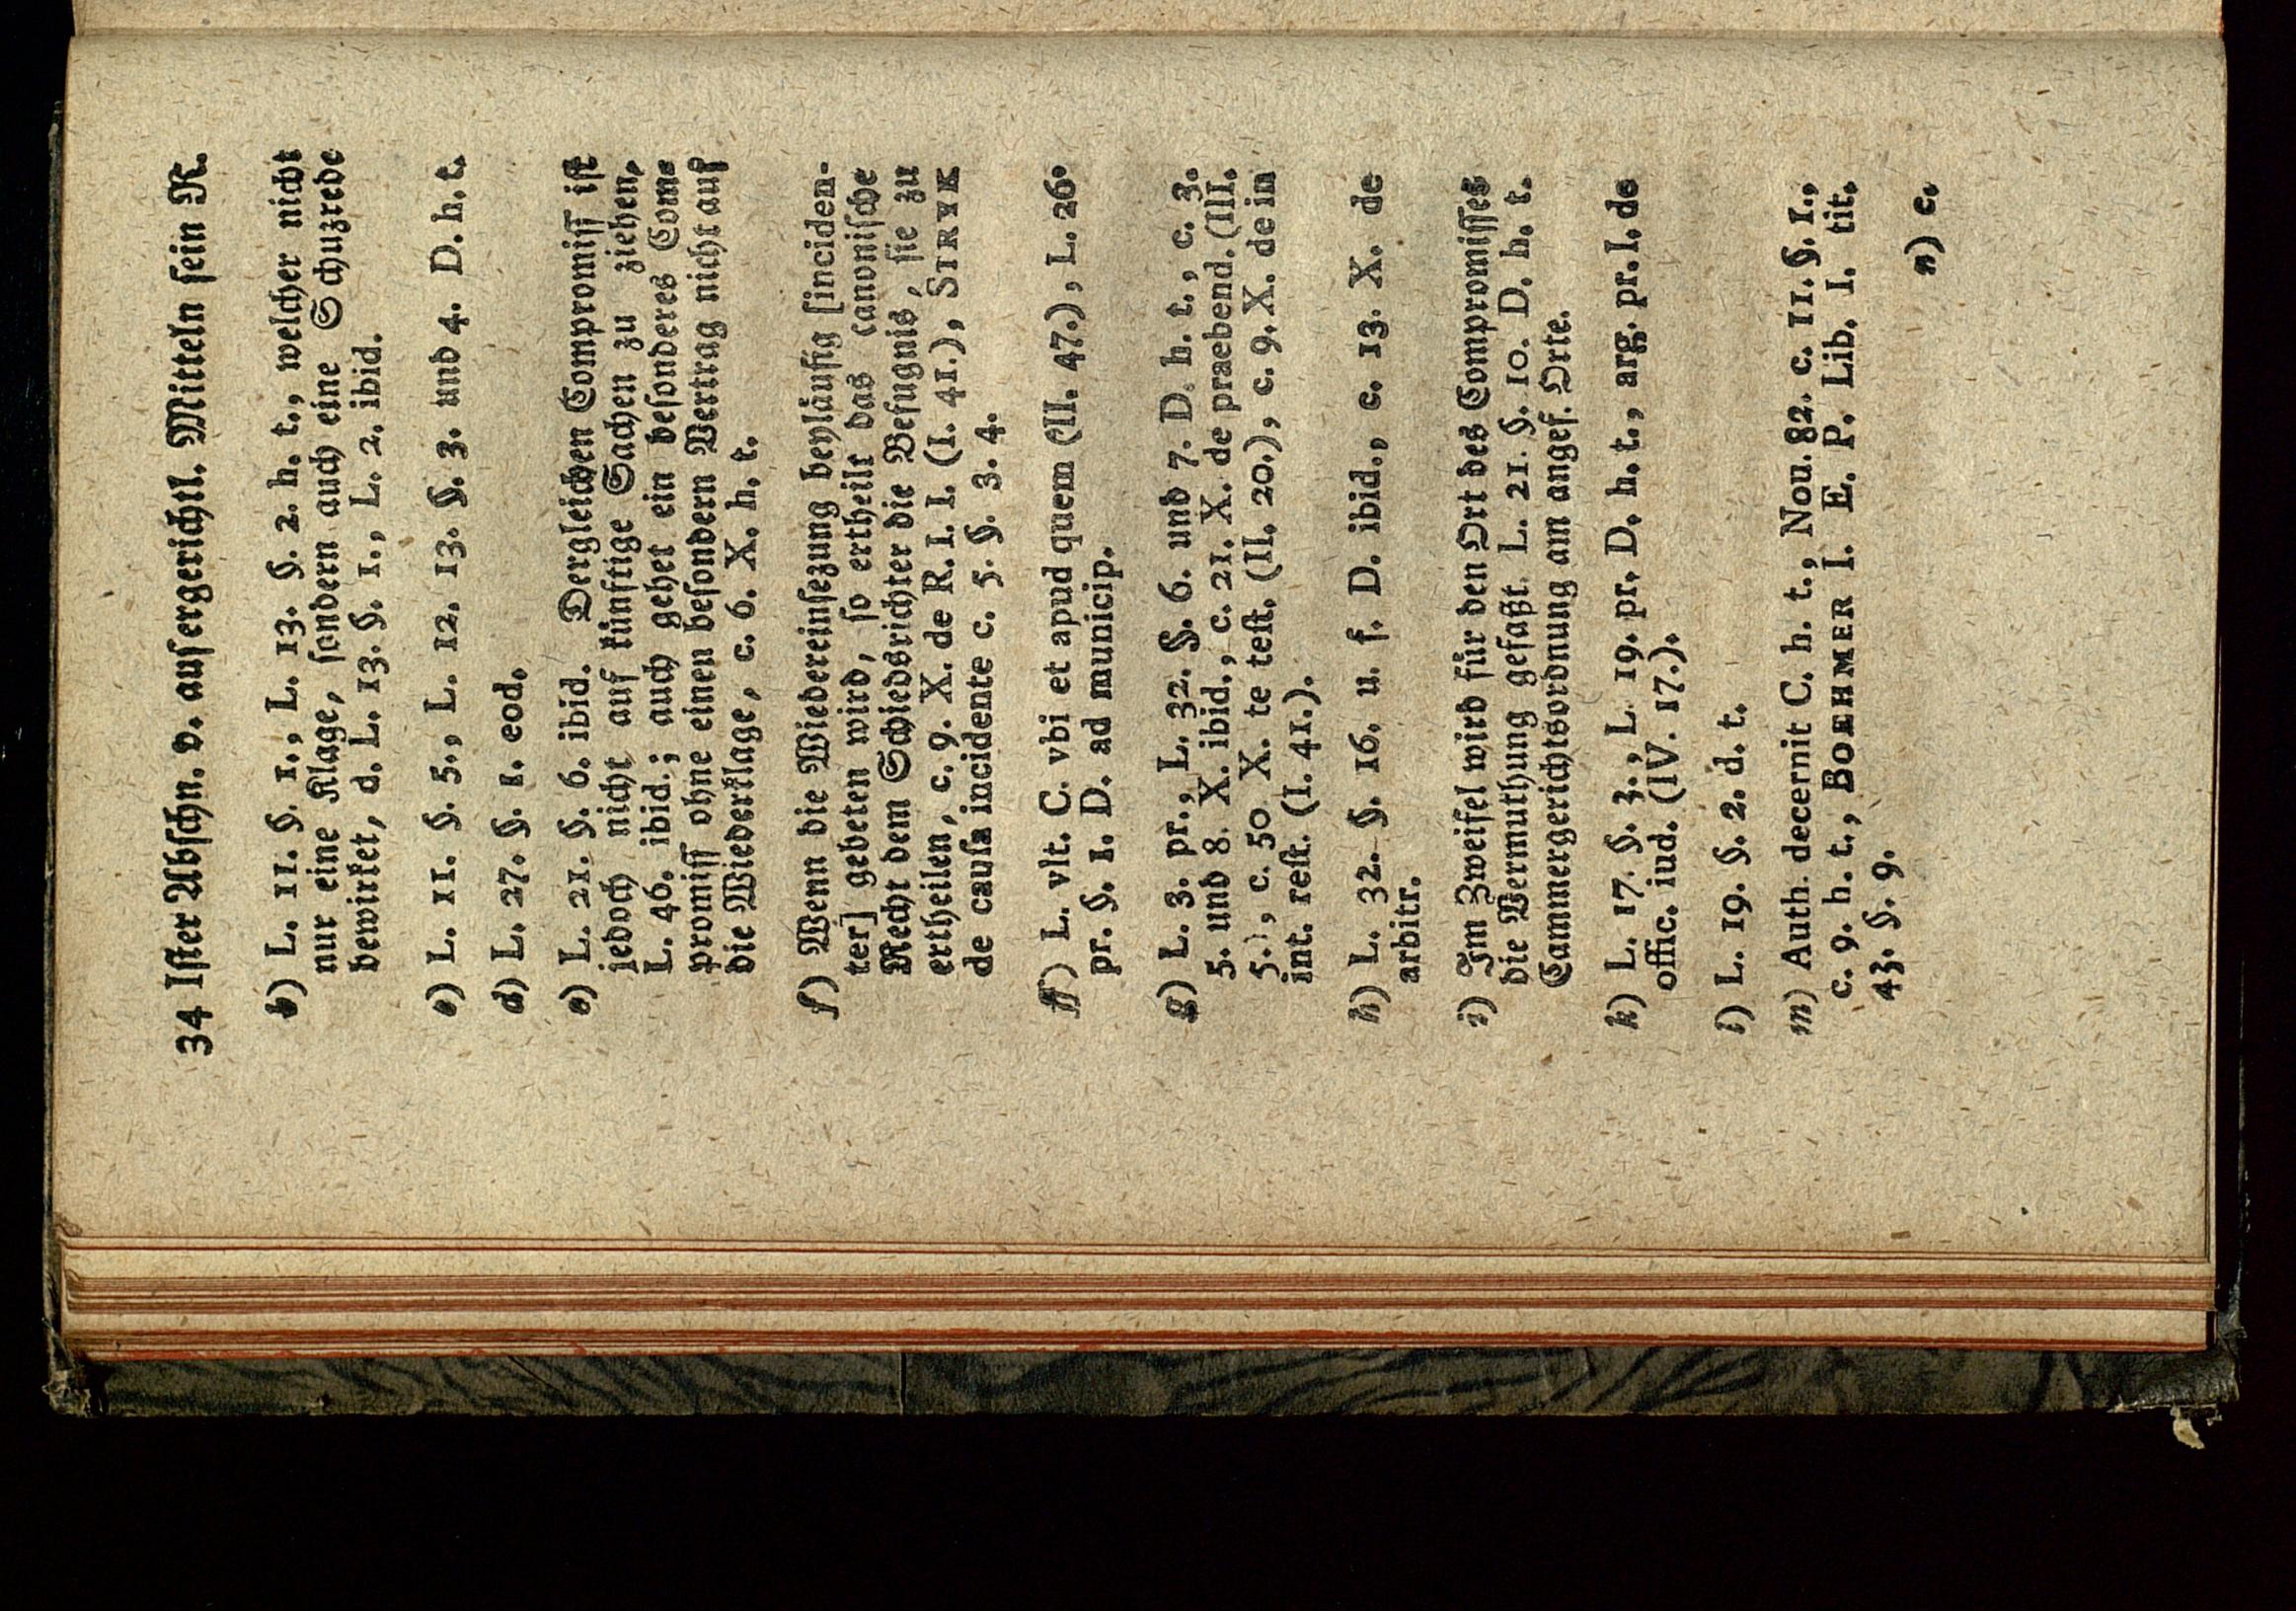 34 Iſter Abſchn. v. auſergerichtl. Mitteln ſein R.
b) L. 11. §. 1., L. 13. §. 2. h. t., welcher nicht
nur eine Klage, ſondern auch eine Schuzrede
bewirket, d. L. 13. §. 1., L. 2. ibid.
c) L. 11. §. 5., L. 12. 13. §. 3. und 4. D. h. t.
d) L. 27. §. 1. eod.
e) L. 21. §. 6. ibid. Dergleichen Compromiſſ iſt
jedoch nicht auf künftige Sachen zu ziehen,
L. 46. ibid.; auch gehet ein beſonderes Com-
promiſſ ohne einen beſondern Vertrag nicht auf
die Wiederklage, c. 6. X. h. t.
f) Wenn die Wiedereinſezung beyläufig [inciden-
ter] gebeten wird, ſo ertheilt das canoniſche
Recht dem Schiedsrichter die Befugnis, ſie zu
ertheilen, c. 9. X. de R. I. I. (I. 41.), STRYK
de cauſa incidente c. 5. §. 3. 4.
ff) L. vlt. C. vbi et apud quem (II. 47.), L. 26.
pr. §. 1. D. ad municip.
g) L. 3. pr., L. 32. §. 6. und 7. D. h. t., c. 3.
5. und 8. X. ibid., c. 21. X. de praebend. (III.
5.), c. 50 X. te teſt. (II. 20.), c. 9. X. de in
int. reſt. (I. 41.).
h) L. 32. §. 16. u. f. D. ibid., c. 13. X. de
arbitr.
i) Im Zweifel wird für den Ort des Compromiſſes
die Vermuthung gefaßt. L. 21. §. 10. D. h. t.
Cammergerichtsordnung am angef. Orte.
k) L. 17. §. 3., L. 19. pr. D. h. t., arg. pr. I. de
offic. iud. (IV. 17.).
l) L. 19. §. 2. d. t.
m) Auth. decernit C. h. t., Nou. 82. c. 11. §. 1.,
c. 9. h. t., BOEHMER I. E. P. Lib. I. tit.
43. §. 9.
n) c.